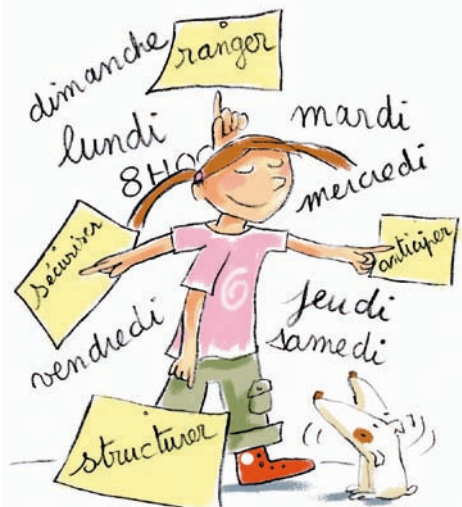 dimanche
ranger
lundi
mardi
8H00
mercredi
sécuriser
anticiper
vendredi
jeudi
samedi
structurer